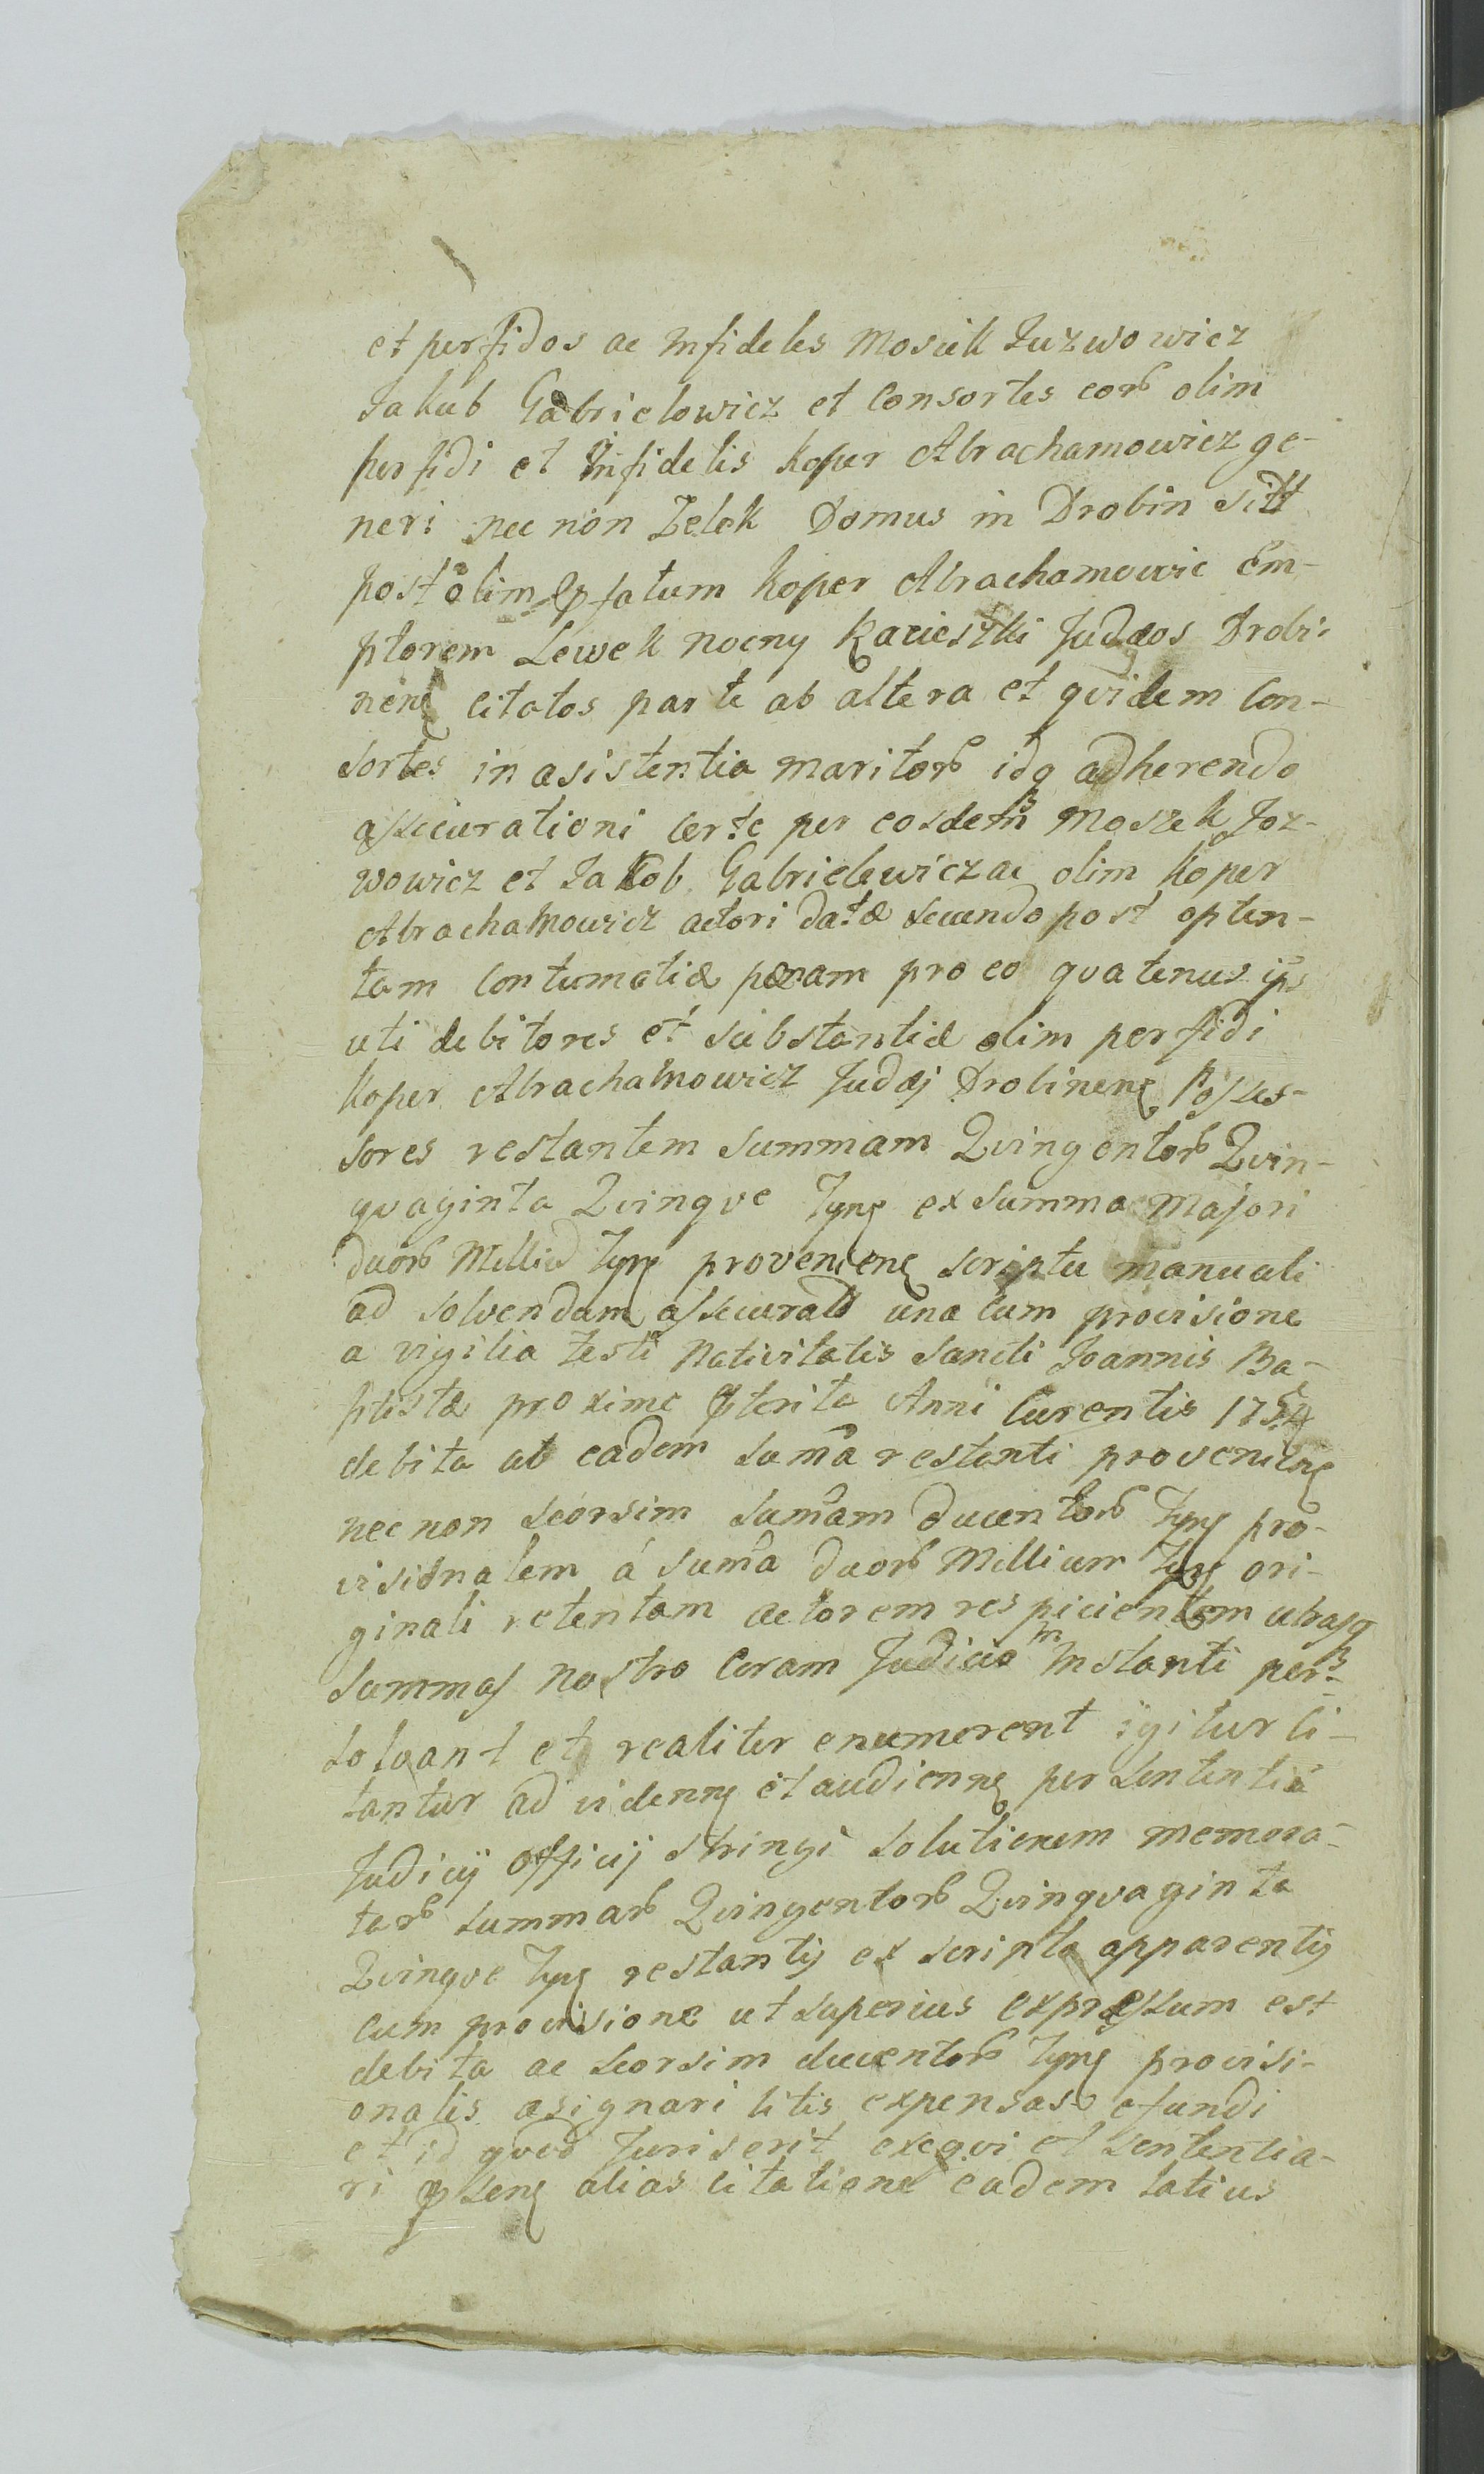 et perfidos ac Infideles Mosiek Juzwowicz
Jakub Gabrielowicz et Consortes eorb olim
perfidi et Infidelis Koper Abrachamowicz ge-
neri nec non Zelek Domus in Drobin sitt
post olim Pfatum Koper Abrachamowic Em-
ptorem Lewek nocny Racieszki Judæos Drobi-
nenę citatos parte ab altera et qvidem Con-
sortes in asistentia maritorb idq adherendo
assecurationi certe per eosdem Moszek Joz-
wowicz et Jakob Gabrielewicz ac olim Koper
Abrachamowicz actori datæ secundo post opten-
tam Contumatiæ pænam pro eo qvatenus ips
uti debitores et substantiæ olim perfidi
Koper Abrachamowicz Judæj Drobinenę Posses-
sores restantem summam Qvingentorb Qvin-
qvaginta Qvinqve Tynę ex summa Majori
duorb Milliu Tynę provenienę scriptu manuali
ad solvendam assecurat una cum provisione
a vigilia Festi Nativitatis Sancti Joannis Ba-
ptistæ proxime Pterita Anni Curentis 1754
debita ab eadem sama restanti provenienę
nec non seorsim samam ducentorb Tynę pro-
visionalem á suma duorb Millium Tynę ori-
ginali retentam actorem respicientem utrasq
summas nostro Coram Judicio Instanti per-
solvant et realiter enumerent igitur Ci-
tantur ad vidennę et audiennę per sententia
Judicij Officij stringi solutionem memora-
tarb summarb Qvingentorb Qvinqvaginta
Qvinqve Tynę restantis ex scripto apparentis
cum provisione ut superius expressum est
debita ac seorsim ducentorb Tynę provisi-
onalis asignari litis expensas efundi
et id qvod Juris erit exeqvi et sententia-
ri Psenę alias citatione eadem latius